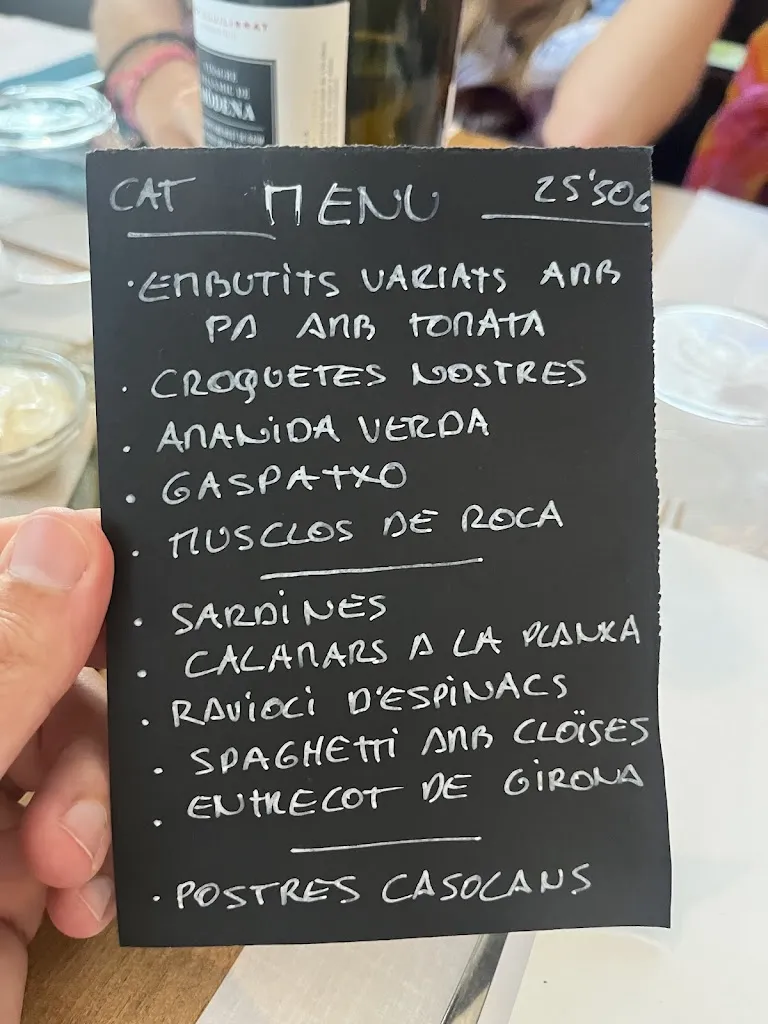 MODENA
CAT MENU 25'50€
·EMBUTITS VARIATS AMB
PA AMB TOMATA
· CROQUETES NOSTRES
· AMANIDA VERDA
· GASPATXO
· MUSCLOS DE ROCA
· SARDINES
· CALAMARS A LA PLANXA
· RAVIOLI D'ESPINACS
· SPAGHETTI AMB CLOÏSES
· ENTRECOT DE GIRONA
· POSTRES CASOLANS